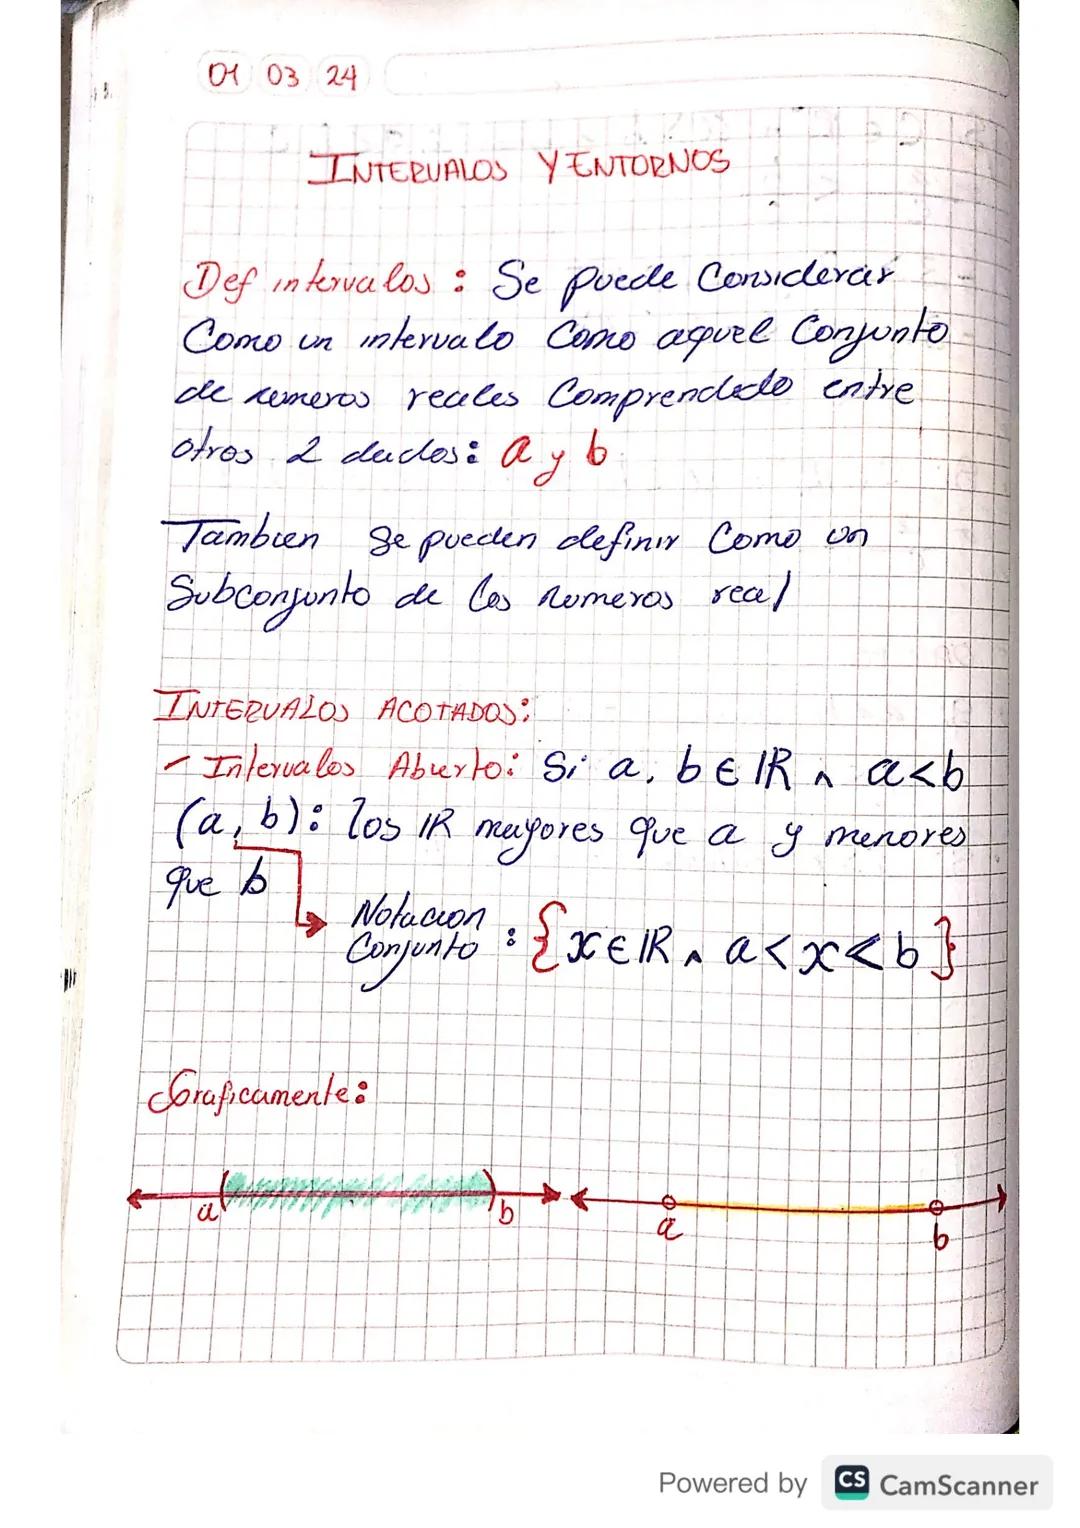 01 03 24
INTERVALOS Y ENTORNOS
Def intervalos : Se puede Considerar
Como un intervalo Como aquel Conjunto
de numeros reales Comprendido entre
otros 2 dados: a y b
Tambien se pueden definir Como un
Subconjunto de los numeros real
INTERVALOS ACOTADOS:
- Intervalos Abierto: Si a, b ∈ IR ∧ a<b
(a, b): los IR mayores que a y menores
que b
Notacion
Conjunto : {x∈IR ∧ a<x<b}
Graficamente:
a b a b
Powered by CS CamScanner